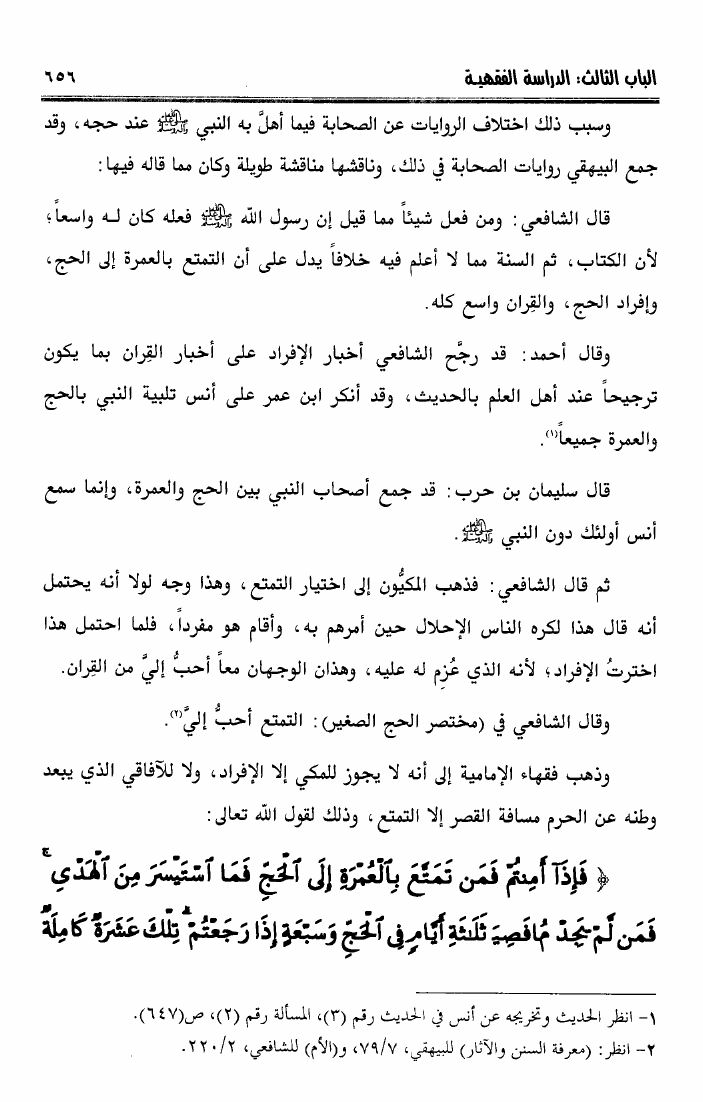 الباب الثالث: الدراسة الفقهية ٦٥٦
وسبب ذلك اختلاف الروايات عن الصحابة فيما أهلَّ به النبي ﷺ عند حجه، وقد
جمع البيهقي روايات الصحابة في ذلك، وناقشها مناقشة طويلة وكان مما قاله فيها:
قال الشافعي: ومن فعل شيئاً مما قيل إن رسول الله ﷺ فعله كان لـه واسعاً؛
لأن الكتاب، ثم السنة مما لا أعلم فيه خلافاً يدل على أن التمتع بالعمرة إلى الحج،
وإفراد الحج، والقِران واسع كله.
وقال أحمد: قد رجَّح الشافعي أخبار الإفراد على أخبار القِران بما يكون
ترجيحاً عند أهل العلم بالحديث، وقد أنكر ابن عمر على أنس تلبية النبي بالحج
والعمرة جميعاً(١).
قال سليمان بن حرب: قد جمع أصحاب النبي بين الحج والعمرة، وإنما سمع
أنس أولئك دون النبي ﷺ.
ثم قال الشافعي: فذهب المكيُّون إلى اختيار التمتع، وهذا وجه لولا أنه يحتمل
أنه قال هذا لكره الناس الإحلال حين أمرهم به، وأقام هو مفرداً، فلما احتمل هذا
اخترتُ الإفراد؛ لأنه الذي عُزِم له عليه، وهذان الوجهان معاً أحبُّ إليَّ من القِران.
وقال الشافعي في (مختصر الحج الصغير): التمتع أحبُّ إليَّ(٢).
وذهب فقهاء الإمامية إلى أنه لا يجوز للمكي إلا الإفراد، ولا للآفاقي الذي يبعد
وطنه عن الحرم مسافة القصر إلا التمتع، وذلك لقول الله تعالى:
﴿ فَإِذَآ أَمِنتُمْ فَمَن تَمَتَّعَ بِٱلْعُمْرَةِ إِلَى ٱلْحَجِّ فَمَا ٱسْتَيْسَرَ مِنَ ٱلْهَدْيِ ۚ
فَمَن لَّمْ يَجِدْ فَصِيَامُ ثَلَٰثَةِ أَيَّامٍ فِي ٱلْحَجِّ وَسَبْعَةٍ إِذَا رَجَعْتُمْ ۗ تِلْكَ عَشَرَةٌ كَامِلَةٌ ۗ
١- انظر الحديث وتخريجه عن أنس في الحديث رقم (٣)، المسألة رقم (٢)، ص(٦٤٧).
٢- انظر: (معرفة السنن والآثار) للبيهقي، ٧٩/٧، و(الأم) للشافعي، ٢٢٠/٢.